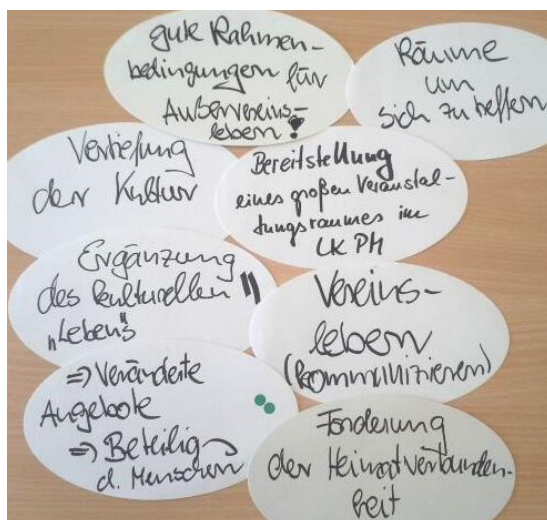 gute Rahmen-
bedingungen für
Außervereins-
leben!
Räume
um
sich zu treffen
Vertiefung
der Kultur
Bereitstellung
eines großen Veranstal-
tungsraumes im
LK PM
Ergänzung
des kulturellen
"Lebens"
Vereins-
leben
(kommunizieren)
=> Veränderte
Angebote
=> Beteilig
d. Menschen
Förderung
der Heimatverbunden-
heit